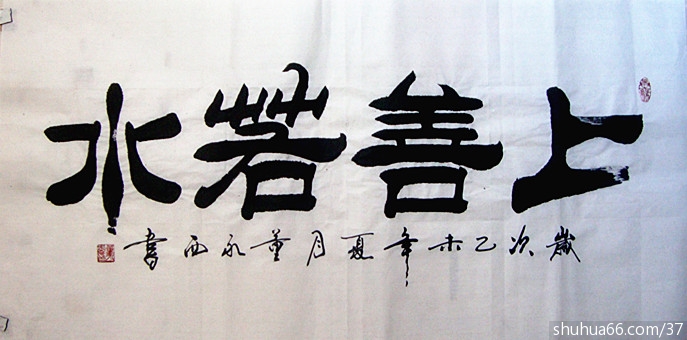 上善若水
歲次乙未年夏月董永西書
shuhua66.com/37